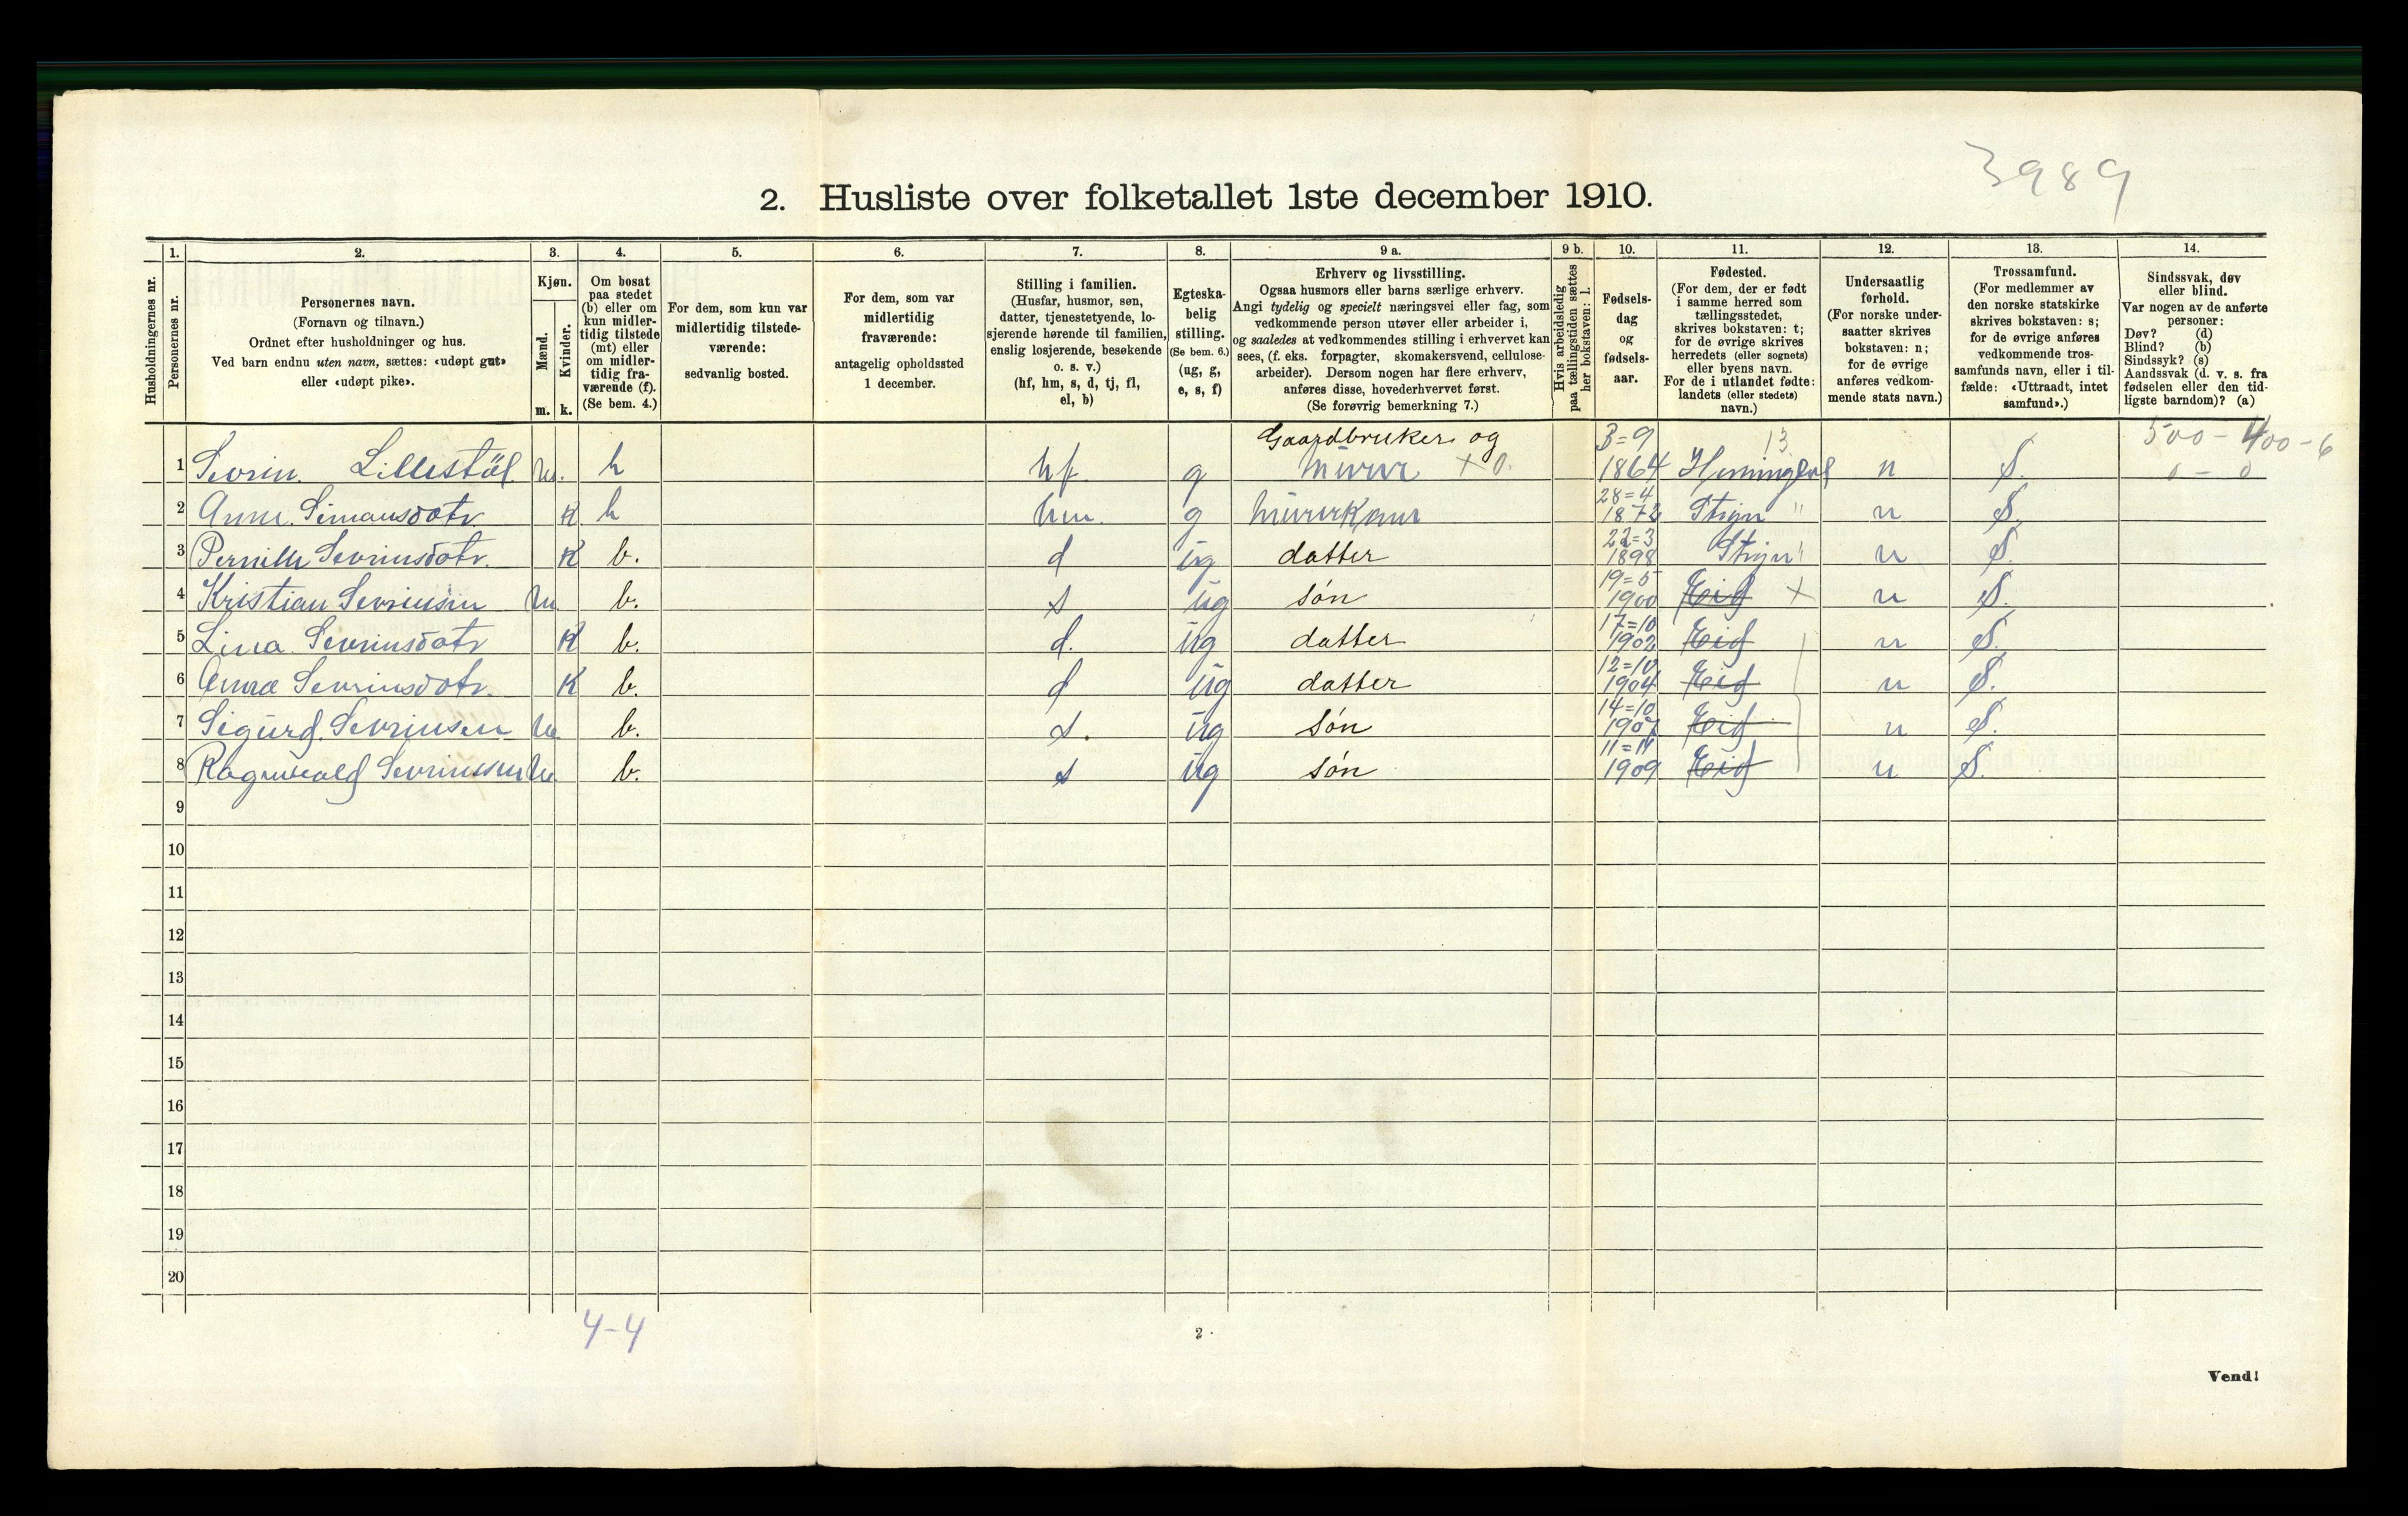 3989
2. Husliste over folketallet 1ste december 1910.
Husholdningernes nr.
1.
Personernes nr.
2.
Personernes navn.
(Fornavn og tilnavn.)
Ordnet efter husholdninger og hus.
Ved barn endnu uten navn, sættes: «udøpt gut»
eller «udøpt pike».
3.
Kjøn.
Mænd.
m.
Kvinder.
k.
4.
Om bosat
paa stedet
(b) eller om
kun midler-
tidig tilstede
(mt) eller
om midler-
tidig fra-
værende (f).
(Se bem. 4.)
5.
For dem, som kun var
midlertidig tilstede-
værende:
sedvanlig bosted.
6.
For dem, som var
midlertidig
fraværende:
antagelig opholdssted
1 december.
7.
Stilling i familien.
(Husfar, husmor, søn,
datter, tjenestetyende, lo-
sjerende hørende til familien,
enslig losjerende, besøkende
o. s. v.)
(hf, hm, s, d, tj, fl,
el, b)
8.
Egteska-
belig
stilling.
(Se bem. 6.)
(ug, g,
e, s, f)
9 a.
Erhverv og livsstilling.
Ogsaa husmors eller barns særlige erhverv.
Angi tydelig og specielt næringsvei eller fag, som
vedkommende person utøver eller arbeider i,
og saaledes at vedkommendes stilling i erhvervet kan
sees, (f. eks. forpagter, skomakersvend, cellulose-
arbeider). Dersom nogen har flere erhverv,
anføres disse, hovederhvervet først.
(Se forøvrig bemerkning 7.)
9 b.
Hvis arbeidsledig
paa tællingstiden sættes
her bokstaven: l.
10.
Fødsels-
dag
og
fødsels-
aar.
11.
Fødested.
(For dem, der er født
i samme herred som
tællingsstedet,
skrives bokstaven: t;
for de øvrige skrives
herredets (eller sognets)
eller byens navn.
For de i utlandet fødte:
landets (eller stedets)
navn.)
12.
Undersaatlig
forhold.
(For norske under-
saatter skrives
bokstaven: n;
for de øvrige
anføres vedkom-
mende stats navn.)
13.
Trossamfund.
(For medlemmer av
den norske statskirke
skrives bokstaven: s;
for de øvrige anføres
vedkommende tros-
samfunds navn, eller i til-
fælde: «Uttraadt, intet
samfund».)
14.
Sindssvak, døv
eller blind.
Var nogen av de anførte
personer:
Døv? (d)
Blind? (b)
Sindssyk? (s)
Aandssvak (d. v. s. fra
fødselen eller den tid-
ligste barndom)? (a)
Gaardbruker og 3=9 13 500-400-6
1 Sevrin. Lillestöl. m. b hf. g murer x 0. 1864 n S. 0-0
28=4
2 Anne. Simonsdotr K b hm. g murerkone 1872 Stryn " n S.
22=3
3 Pernille Sevrinsdotr. K b. d ug datter 1898 Stryn " n S.
19=5
4 Kristian Sevrinsen m. b. s ug søn 1900 Eid x n S.
17=10
5 Lina Sevrinsdotr K b. d. ug datter 1902 Eid n S.
12=10
6 Anna Sevrinsdotr. K b. d ug datter 1904 Eid n S.
14=10
7 Sigurd. Sevrinsen m. b. s. ug søn 1907 Eid n S.
11=11
8 Ragnvald Sevrinsen m. b. s ug søn 1909 Eid n S.
9
10
11
12
13
14
15
16
17
18
19
20
4-4
2
Vend!